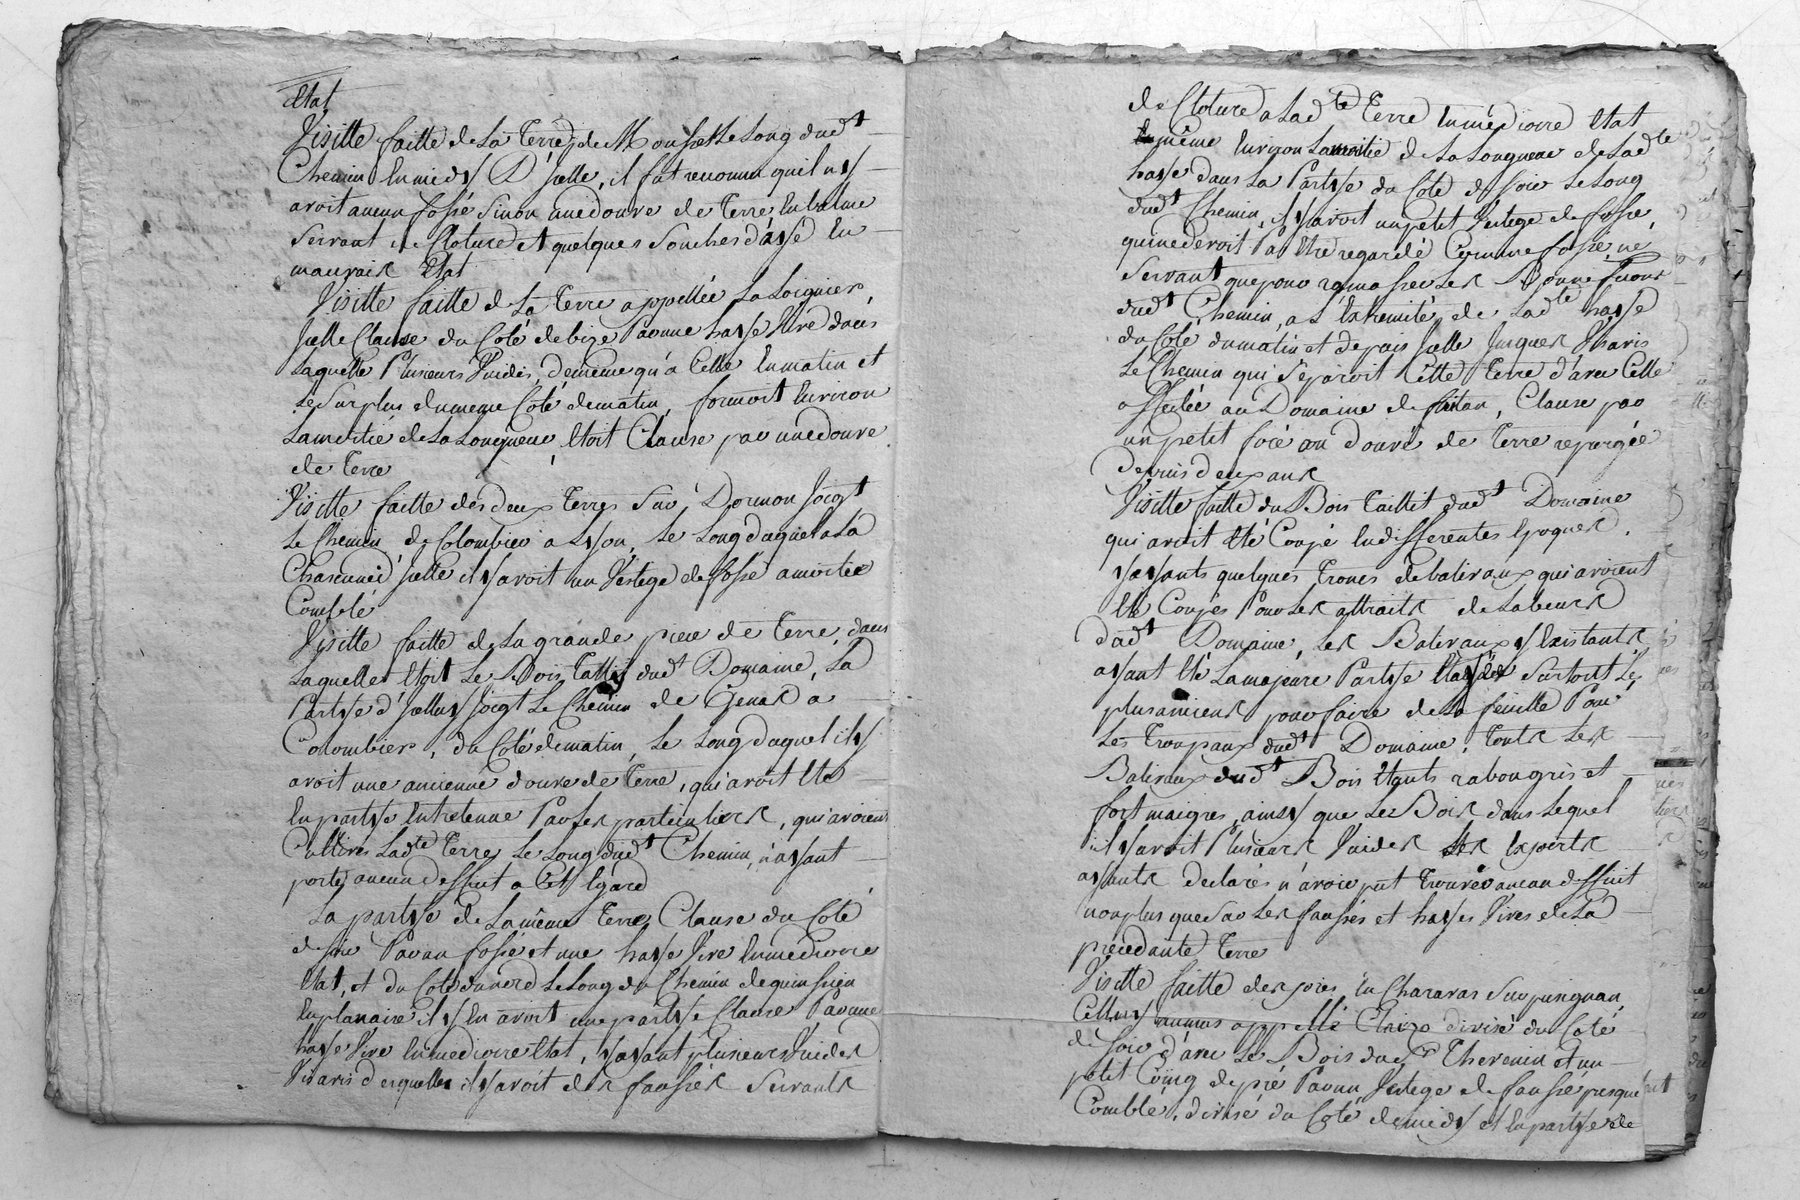 Etat
Visitte faitte de La Terre de Mousset Le Long dudt
Chemin En midy D'Jcelle, il fut reconnu quil ny
avoit aucun fossé Sinon une douve de Terre En balme
Servant de Cloture et quelques Souches d'aye En
mauvais Etat
Visitte faitte de La Terre appellée La Loignier,
Jcelle Clause du Coté de bize Par une haye Vive dans
Laquelle Plusieurs Vuides, de meme qu'a Celle En matin et
Le Surplus du meme Coté de matin, formoit Environ
La moitié de La Longueur, Etoit Clause par une douve
de Terre
Visitte faitte des deux Terres Sur Dormon Joigt
Le Chemin de Colombier a Lyon, Le Long duquel a La
Chacune d'Jcelle il y avoit un Vestege de fossé a moitié
Comblé
Visitte faitte de La grande piece de Terre, dans
Laquelle Etoit Le Bois Taillis dudt Domaine, La
Partye d'Jcelluy Joigt Le Chemin de Genas a
Colombier, du Coté de matin, Le Long duquel il y
avoit une ancienne douve de Terre, qui avoit Eté
En partye Entretenue Par Les particuliers, qui avoient
Cultivés Ladte Terre Le Long dudt Chemin, n'ayant
portez aucun deffuit a Cet Egard
La partye de La même Terre Clause du Coté
de soir Par un fossé et une haye Vive En mediocre
Etat, et du Coté du nord Le Long du Chemin de quinssieu
En planaise il y En avoit une partye Clause Par une
haye Vive En mediocre Etat, y ayant plusieurs Vuides
Vis avis desquelles il y avoit des faussés Servants
de Cloture a Ladte Terre En médiocre Etat
même Environ La moitié de La Longueur de Ladte
haye dans La Partye du Coté de soir Le Long
dudt Chemin, il y avoit un petit Vestege de fossé,
qui ne devoit Pas Etre regardé Comme fossé ne
Servant que pour ramasser Les
dudt Chemin, a L'Extremité de Ladte haye
du Coté du matin et depuis Jcelle Jusques Vis avis
Le Chemin qui Séparoit Cette Terre d'avec Celle
affectée au Domaine de fêtan, Clause par
un petit focé ou Douve de Terre repurgée
Depuis deux ans
Visitte faitte du Bois Taillit dudt Domaine
qui avoit Eté Coupé En differentes Epoques,
y ayants quelques Troncs de balivaux qui avoient
Eté Coupés Pour Les attraits de Labeurs
dudt Domaine, Les Balivaux y Existants
ayant Eté La majeure Partye Etayés Surtout Les
plus anciens pour faire de La feuille Pour
Les Troupaux dudt Domaine, Touts Les
Balivaux dudt Bois Etants rabougris et
fort maigres, ainsy que Le Bois, dans Lequel
il y avoit Plusieurs Vuides Les Experts
ayants declarés n'avoir put Trouver aucun deffuit
non plus que Sur Les faussés et hayes Vives de La
precedante Terre
Visitte faitte des prés En Charavas Sur pusignan,
Celluy appellé Claix divisé du Coté
de Soir d'avec Le Bois du Sr Thevenin et un
petit Coing de pré Par un Vestege de faussé presque
Comblé, divisé du Coté de midy et En partye de